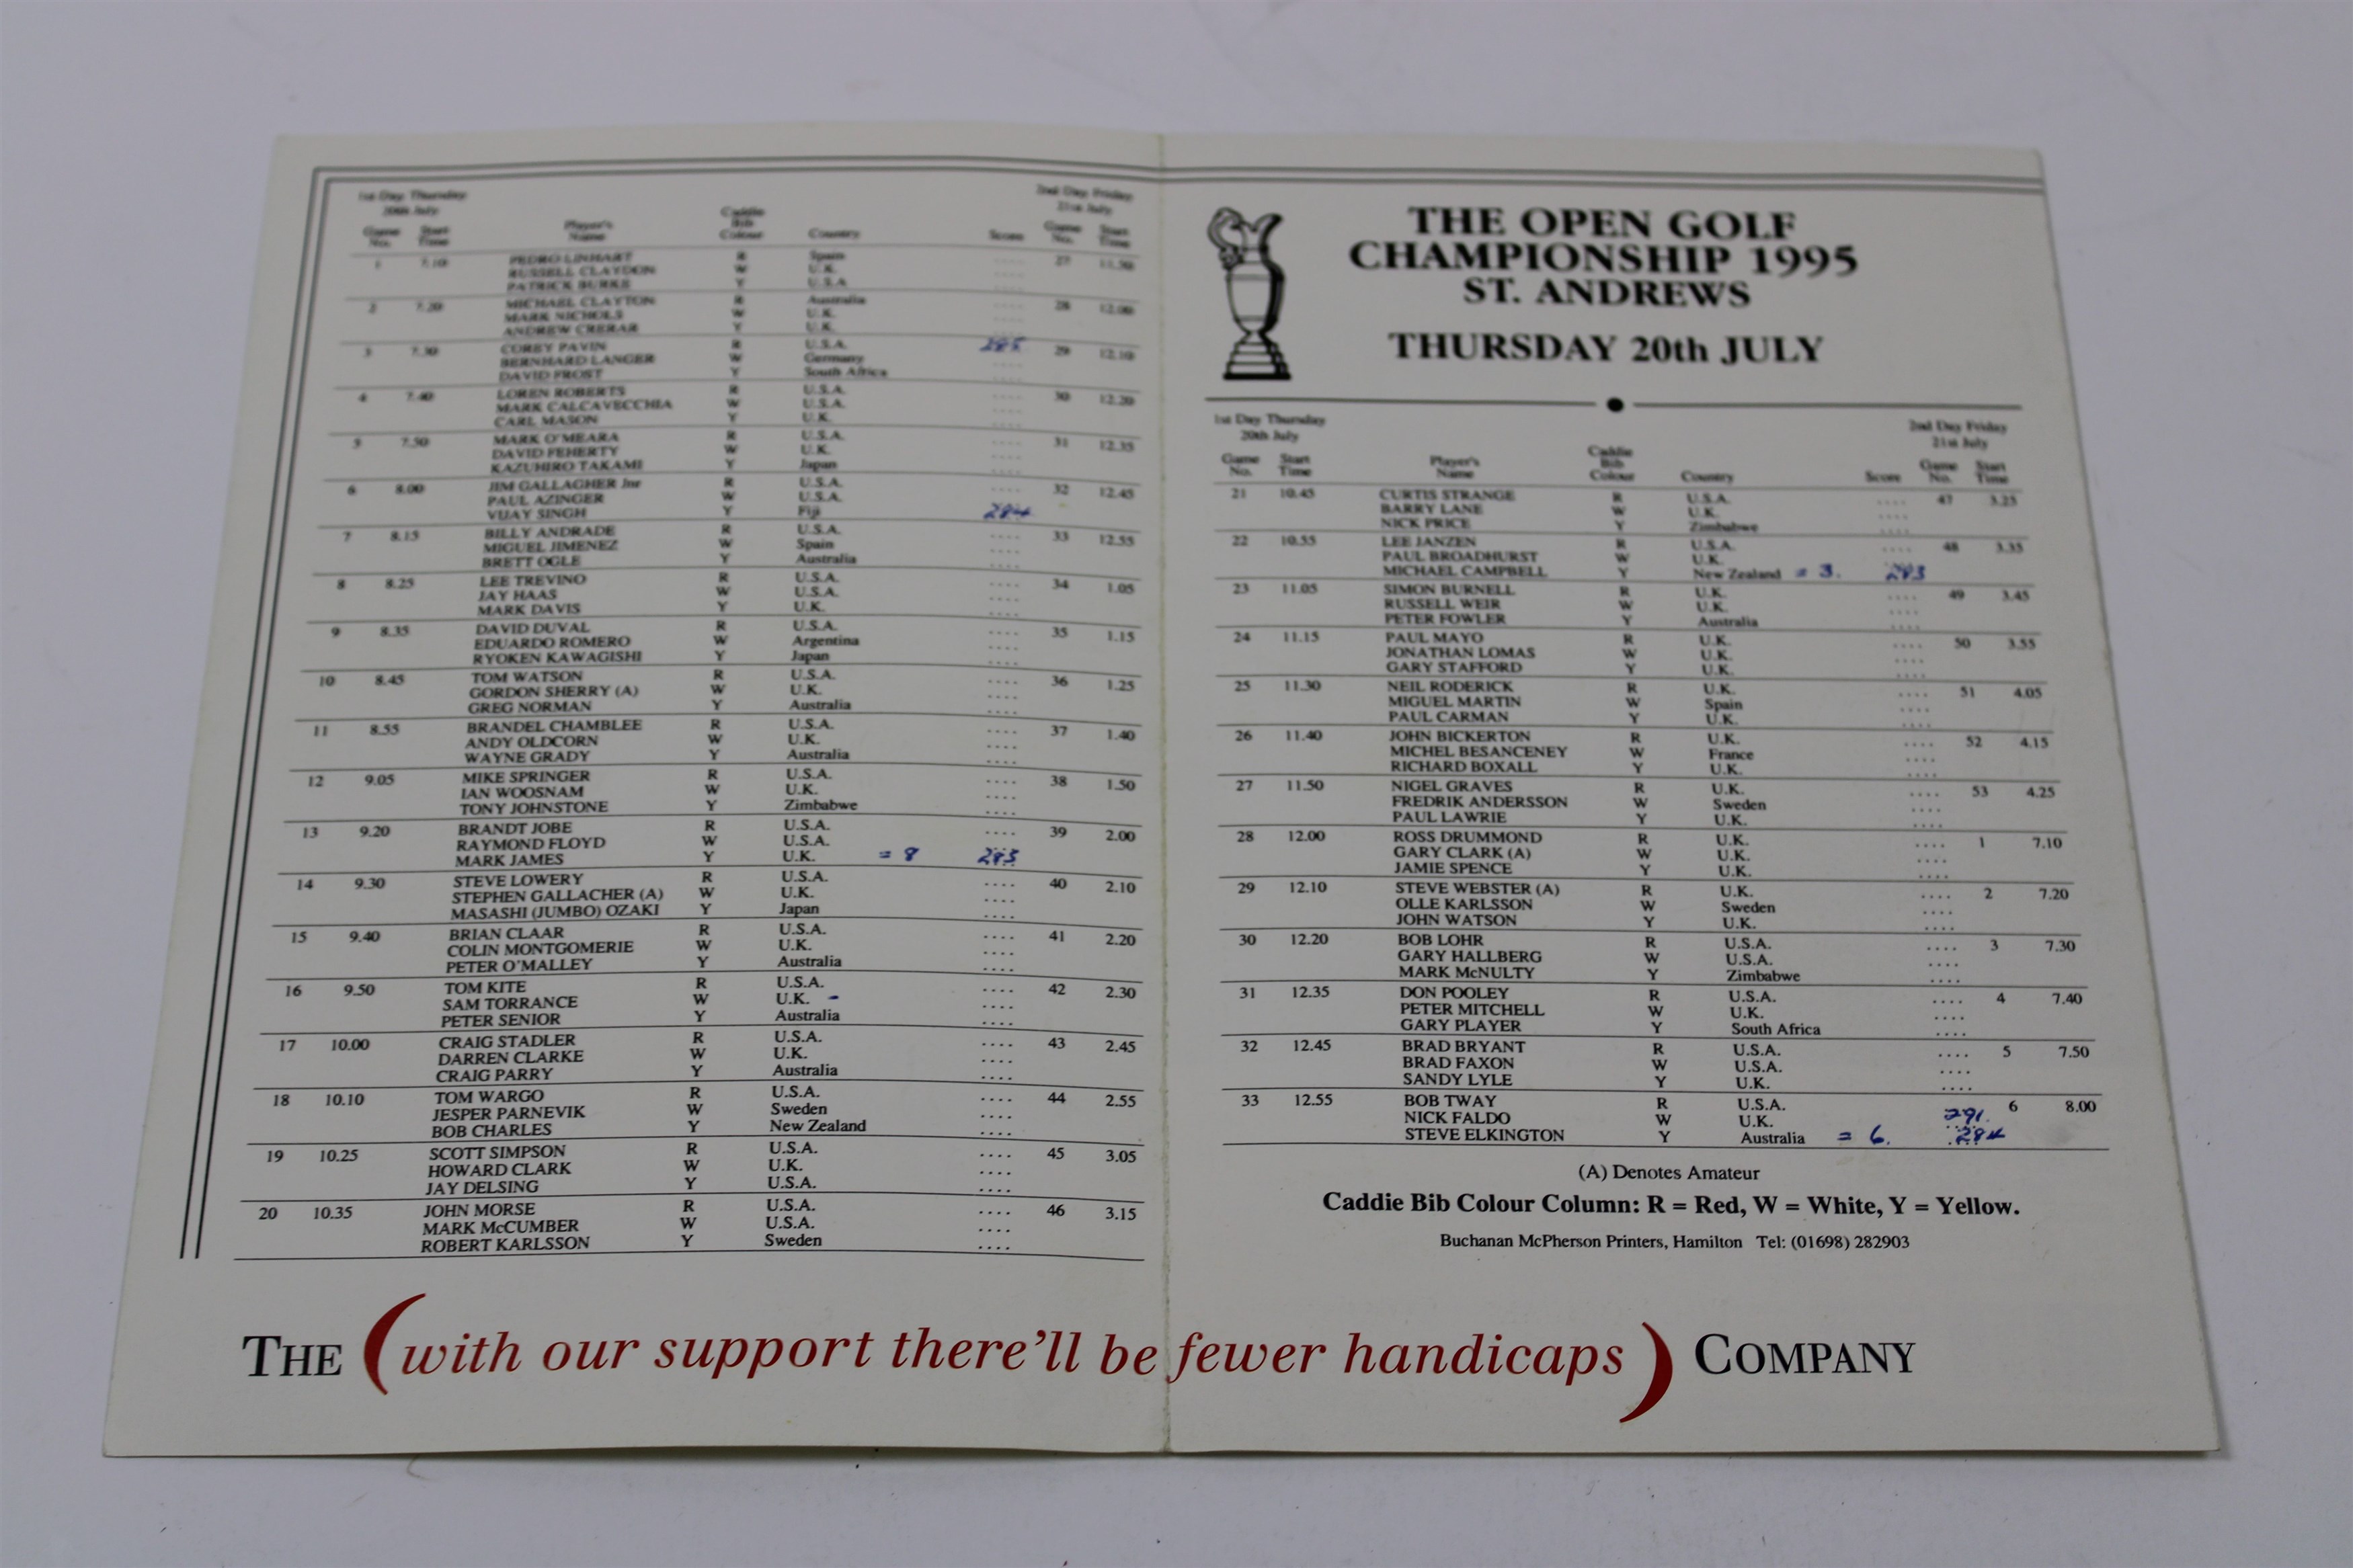 1st Day Thursday 2nd Day Friday
20th July 21st July
Game No. Start Time Player's Name Caddie Bib Colour Country Score Game No. Start Time
1 7.10 PEDRO LINHART R Spain .... 27 11.50
RUSSELL CLAYDON W U.K. ....
PATRICK BURKE Y U.S.A ....
2 7.20 MICHAEL CLAYTON R Australia .... 28 12.00
MARK NICHOLS W U.K. ....
ANDREW CRERAR Y U.K. ....
3 7.30 COREY PAVIN R U.S.A. 285 29 12.10
BERNHARD LANGER W Germany ....
DAVID FROST Y South Africa ....
4 7.40 LOREN ROBERTS R U.S.A. .... 30 12.20
MARK CALCAVECCHIA W U.S.A. ....
CARL MASON Y U.K. ....
5 7.50 MARK O'MEARA R U.S.A. .... 31 12.35
DAVID FEHERTY W U.K. ....
KAZUHIRO TAKAMI Y Japan ....
6 8.00 JIM GALLAGHER Jnr R U.S.A. .... 32 12.45
PAUL AZINGER W U.S.A. ....
VIJAY SINGH Y Fiji 284
7 8.15 BILLY ANDRADE R U.S.A. .... 33 12.55
MIGUEL JIMENEZ W Spain ....
BRETT OGLE Y Australia ....
8 8.25 LEE TREVINO R U.S.A. .... 34 1.05
JAY HAAS W U.S.A. ....
MARK DAVIS Y U.K. ....
9 8.35 DAVID DUVAL R U.S.A. .... 35 1.15
EDUARDO ROMERO W Argentina ....
RYOKEN KAWAGISHI Y Japan ....
10 8.45 TOM WATSON R U.S.A. .... 36 1.25
GORDON SHERRY (A) W U.K. ....
GREG NORMAN Y Australia ....
11 8.55 BRANDEL CHAMBLEE R U.S.A. .... 37 1.40
ANDY OLDCORN W U.K. ....
WAYNE GRADY Y Australia ....
12 9.05 MIKE SPRINGER R U.S.A. .... 38 1.50
IAN WOOSNAM W U.K. ....
TONY JOHNSTONE Y Zimbabwe ....
13 9.20 BRANDT JOBE R U.S.A. .... 39 2.00
RAYMOND FLOYD W U.S.A. ....
MARK JAMES Y U.K. = 8 283
14 9.30 STEVE LOWERY R U.S.A. .... 40 2.10
STEPHEN GALLACHER (A) W U.K. ....
MASASHI (JUMBO) OZAKI Y Japan ....
15 9.40 BRIAN CLAAR R U.S.A. .... 41 2.20
COLIN MONTGOMERIE W U.K. ....
PETER O'MALLEY Y Australia ....
16 9.50 TOM KITE R U.S.A. .... 42 2.30
SAM TORRANCE W U.K. - ....
PETER SENIOR Y Australia ....
17 10.00 CRAIG STADLER R U.S.A. .... 43 2.45
DARREN CLARKE W U.K. ....
CRAIG PARRY Y Australia ....
18 10.10 TOM WARGO R U.S.A. .... 44 2.55
JESPER PARNEVIK W Sweden ....
BOB CHARLES Y New Zealand ....
19 10.25 SCOTT SIMPSON R U.S.A. .... 45 3.05
HOWARD CLARK W U.K. ....
JAY DELSING Y U.S.A. ....
20 10.35 JOHN MORSE R U.S.A. .... 46 3.15
MARK McCUMBER W U.S.A. ....
ROBERT KARLSSON Y Sweden ....
THE OPEN GOLF
CHAMPIONSHIP 1995
ST. ANDREWS
THURSDAY 20th JULY
1st Day Thursday 2nd Day Friday
20th July 21st July
Game No. Start Time Player's Name Caddie Bib Colour Country Score Game No. Start Time
21 10.45 CURTIS STRANGE R U.S.A. .... 47 3.25
BARRY LANE W U.K. ....
NICK PRICE Y Zimbabwe ....
22 10.55 LEE JANZEN R U.S.A. .... 48 3.35
PAUL BROADHURST W U.K. ....
MICHAEL CAMPBELL Y New Zealand = 3. 283
23 11.05 SIMON BURNELL R U.K. .... 49 3.45
RUSSELL WEIR W U.K. ....
PETER FOWLER Y Australia ....
24 11.15 PAUL MAYO R U.K. .... 50 3.55
JONATHAN LOMAS W U.K. ....
GARY STAFFORD Y U.K. ....
25 11.30 NEIL RODERICK R U.K. .... 51 4.05
MIGUEL MARTIN W Spain ....
PAUL CARMAN Y U.K. ....
26 11.40 JOHN BICKERTON R U.K. .... 52 4.15
MICHEL BESANCENEY W France ....
RICHARD BOXALL Y U.K. ....
27 11.50 NIGEL GRAVES R U.K. .... 53 4.25
FREDRIK ANDERSSON W Sweden ....
PAUL LAWRIE Y U.K. ....
28 12.00 ROSS DRUMMOND R U.K. .... 1 7.10
GARY CLARK (A) W U.K. ....
JAMIE SPENCE Y U.K. ....
29 12.10 STEVE WEBSTER (A) R U.K. .... 2 7.20
OLLE KARLSSON W Sweden ....
JOHN WATSON Y U.K. ....
30 12.20 BOB LOHR R U.S.A. .... 3 7.30
GARY HALLBERG W U.S.A. ....
MARK McNULTY Y Zimbabwe ....
31 12.35 DON POOLEY R U.S.A. .... 4 7.40
PETER MITCHELL W U.K. ....
GARY PLAYER Y South Africa ....
32 12.45 BRAD BRYANT R U.S.A. .... 5 7.50
BRAD FAXON W U.S.A. ....
SANDY LYLE Y U.K. ....
33 12.55 BOB TWAY R U.S.A. 6 8.00
NICK FALDO W U.K. 291.
STEVE ELKINGTON Y Australia = 6. 284
(A) Denotes Amateur
Caddie Bib Colour Column: R = Red, W = White, Y = Yellow.
Buchanan McPherson Printers, Hamilton Tel: (01698) 282903
THE (with our support there'll be fewer handicaps) COMPANY